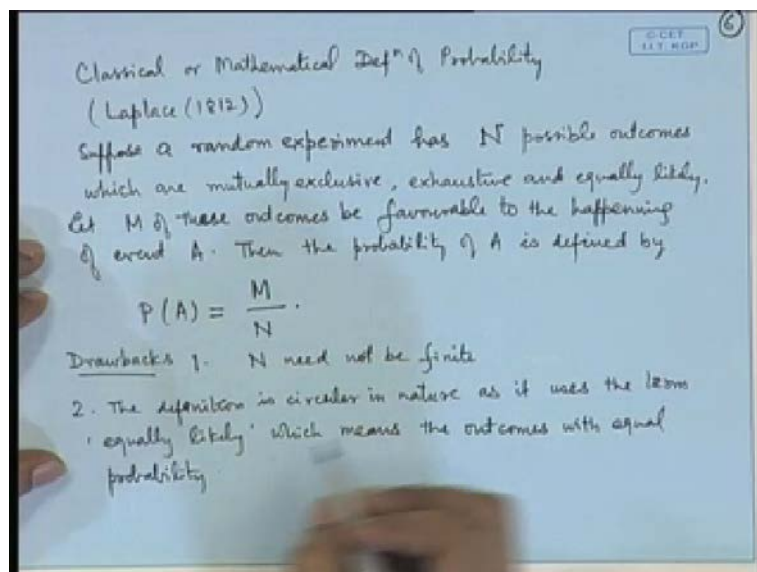 6
C-CET
I.I.T. KGP
Classical or Mathematical Defⁿ of Probability
(Laplace (1812))
Suppose a random experiment has N possible outcomes
which are mutually exclusive, exhaustive and equally likely.
Let M of these outcomes be favourable to the happening
of event A. Then the probability of A is defined by
P(A) = M/N.
Drawbacks 1. N need not be finite
2. The definition is circular in nature as it uses the term
'equally likely' which means the outcomes with equal
probability